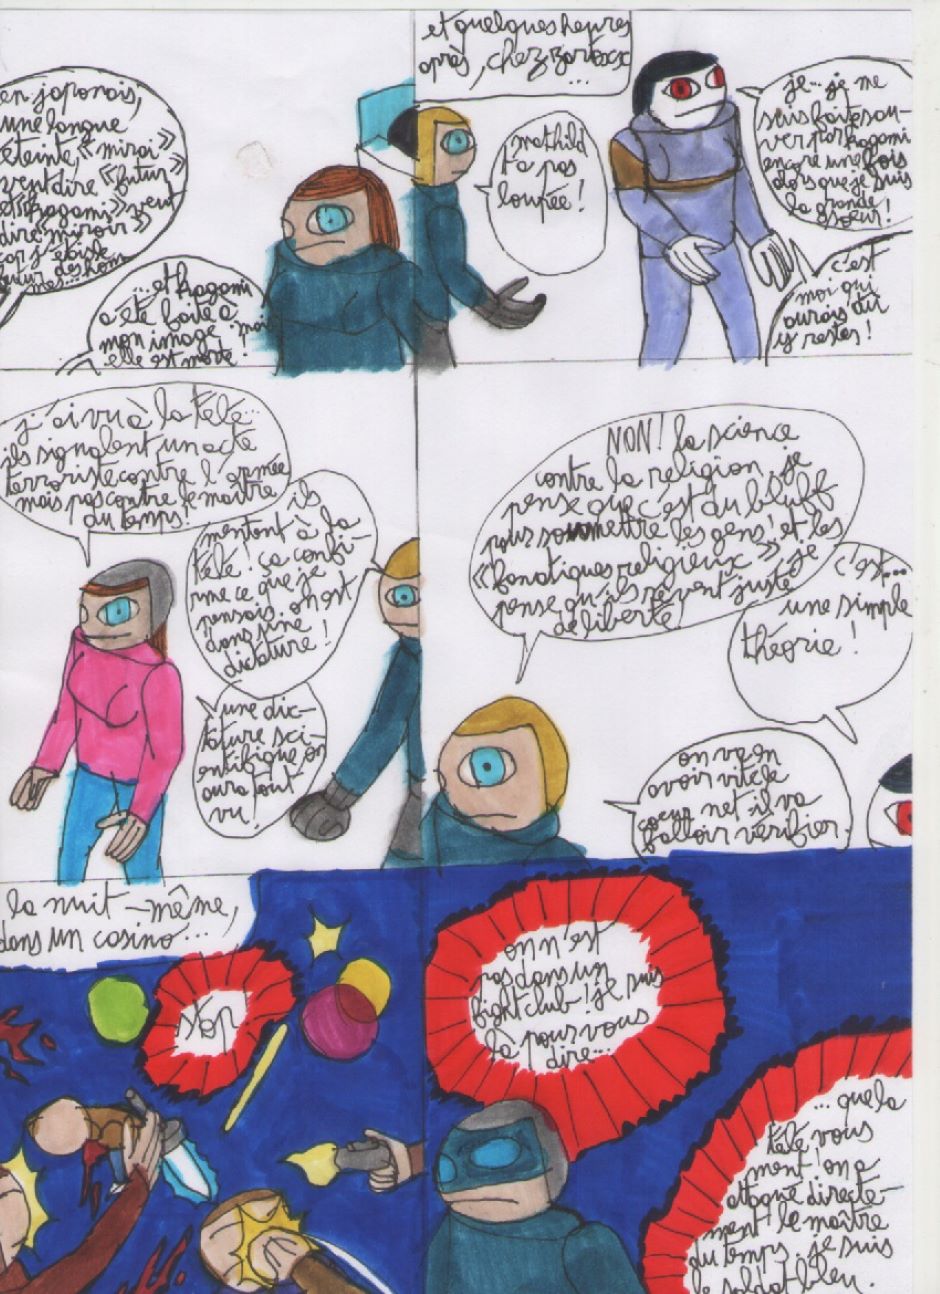 en japonais,
une langue
éteinte, « mirai »
veut dire « futur »
et « kagami » veut
dire « miroir »
car j'étais le
futur des hom
mes...
...et kagami
a été faite à
mon image mais
elle est morte !
et quelques heures
après, chez
mathild
t'a pas
loupée !
je... je me
suis faite sau-
ver par kagami
encore une fois
alors que je suis
la grande
soeur !
c'est
moi qui
aurais dû
y rester !
j'ai vu à la télé...
ils signalent un acte
terroriste contre l'armée
mais pas contre le maître
du temps !
ils
mentent à la
télé ! ça confir
me ce que je
pensais. on est
dans une
dictature !
une dic-
tature sci-
entifique on
aura tout
vu !
NON ! la science
contre la religion, je
pense que c'est du bluff
pour soumettre les gens ! et les
« fanatiques religieux », je
pense qu'ils rêvent juste
de liberté !
c'est...
une simple
théorie !
on va en
avoir vite le
coeur net. il va
falloir vérifier.
la nuit-même,
dans un casino...
stop
on n'est
pas dans un
fight club ! je suis
là pour vous
dire...
... que la
télé vous
ment ! on a
attaqué directe-
ment le maître
du temps. je suis
le soldat bleu.